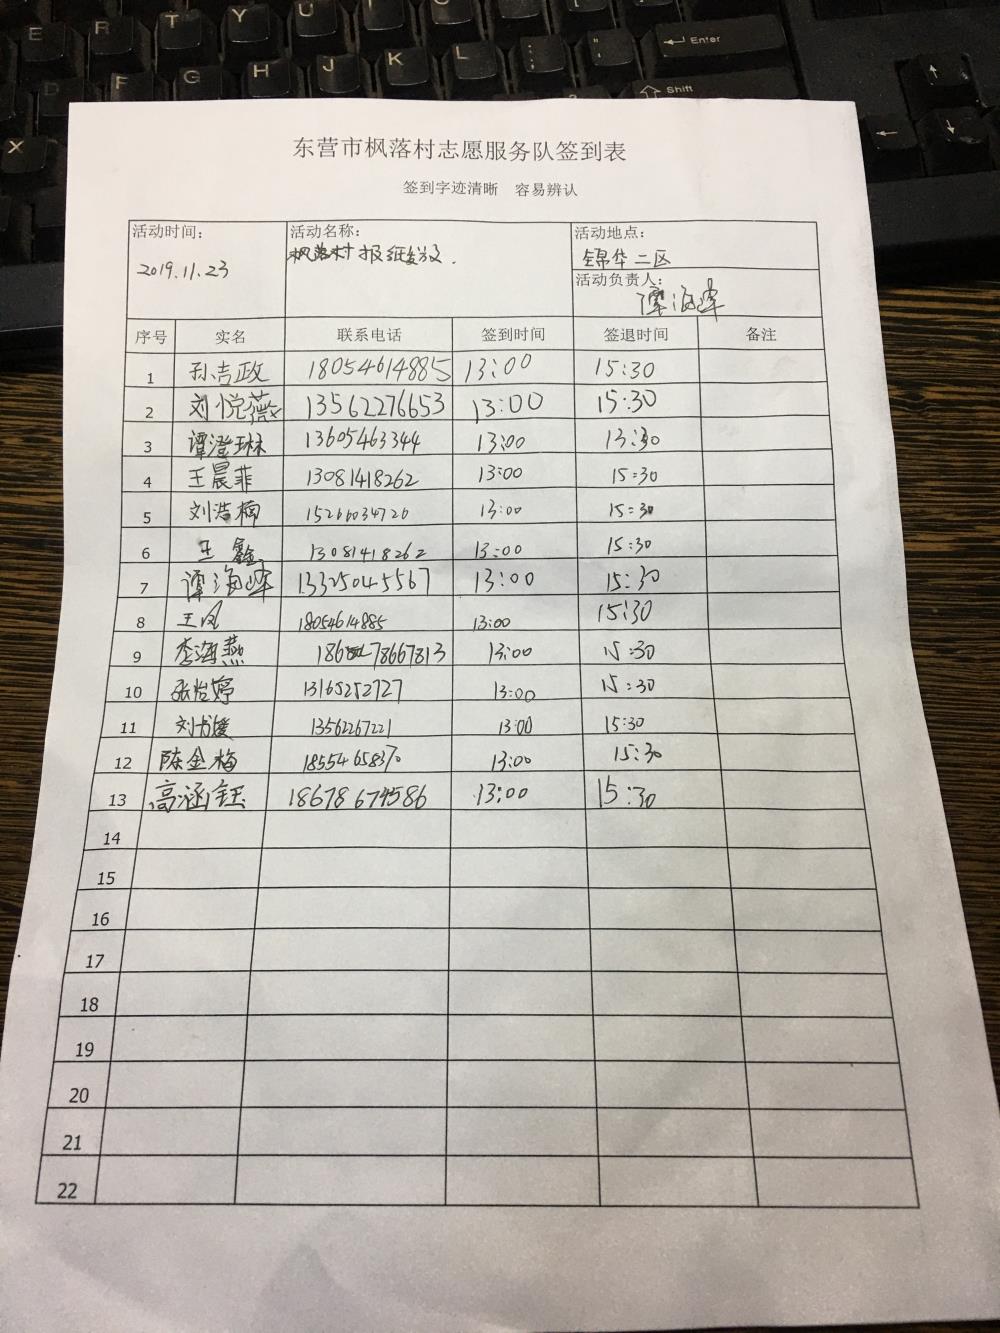 E R T Y U I
D F G H J K L : ; " ' Enter
X Shift
东营市枫落村志愿服务队签到表
签到字迹清晰 容易辨认
活动时间: 活动名称: 活动地点:
2019.11.23 枫落村报纸义. 锦华二区
活动负责人: 谭海峰
序号 实名 联系电话 签到时间 签退时间 备注
1 孙吉政 18054614885 13:00 15:30
2 刘悦薇 13562276653 13:00 15:30
3 谭澄琳 13605463344 13:00 13:30
4 王晨菲 13081418262 13:00 15:30
5 刘浩楠 15266034726 13:00 15:30
6 王鑫 13081418262 13:00 15:30
7 谭海峰 13325045567 13:00 15:30
8 王凤 18054614885 13:00 15:30
9 李海燕 186 78667813 13:00 15:30
10 张怡婷 13165252727 13:00 15:30
11 刘媛 13562267221 13:00 15:30
12 陈金梅 18554658370 13:00 15:30
13 高涵钰 18678674586 13:00 15:30
14
15
16
17
18
19
20
21
22